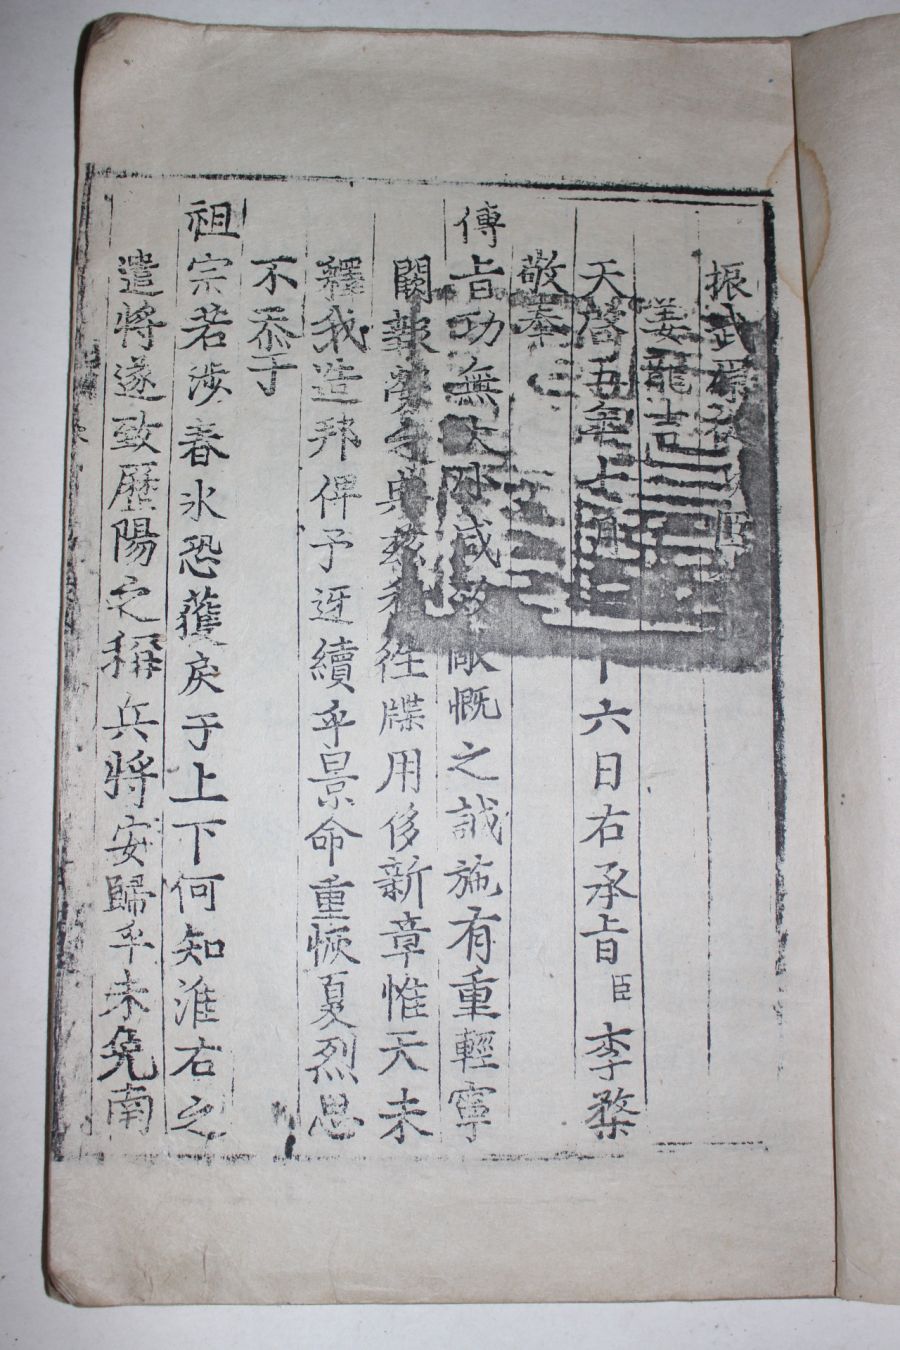 振武原從功臣
姜龍吉
天啓五年十一月二十六日右承旨臣李楘
敬奉
傳旨功無大小咸多敵愾之誠施有重輕寧
闕報勞之典玆循往牒用侈新章惟天未
釋我造邦俾予迓續乎景命重恢夏烈思
不忝于
祖宗若涉春氷恐獲戾于上下何知淮右之
遣將遂致歷陽之稱兵將安歸乎未免南